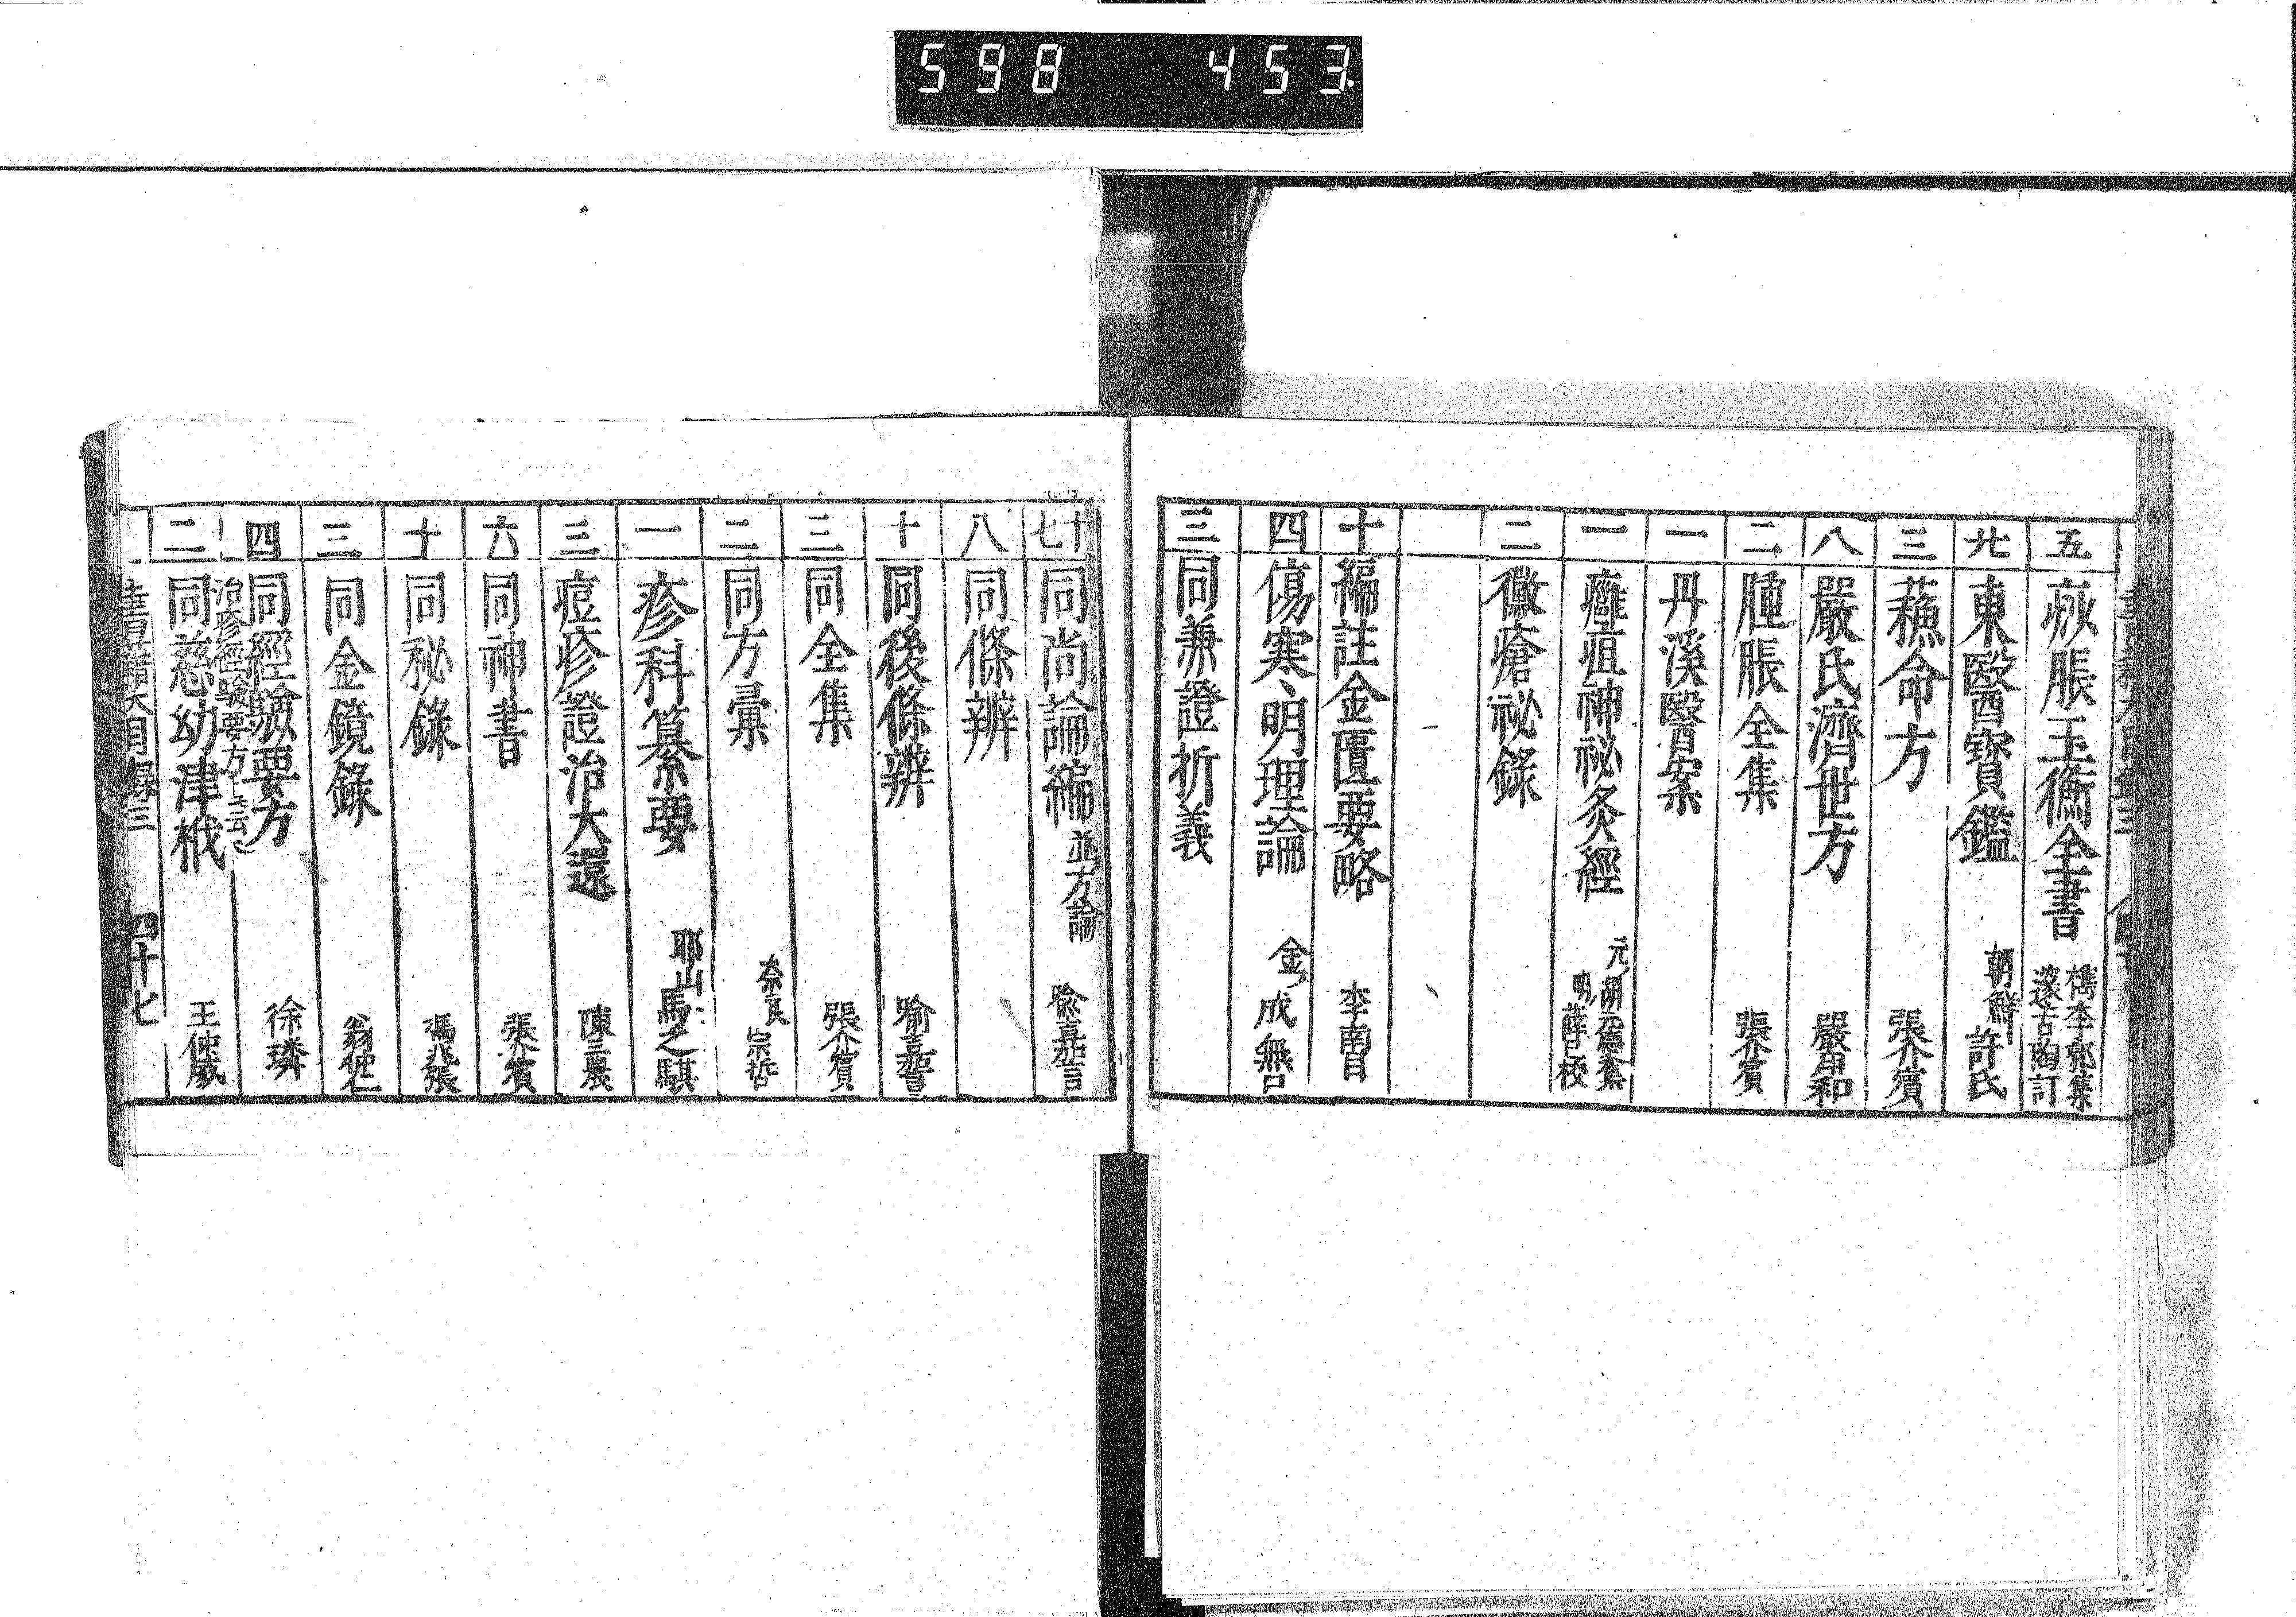 598 453
五 痧脹玉衡全書 檇李郭集 邃古陶訂
廿 東醫寳鑑 朝鮮 許氏
三 蘓命方 張介賓
八 嚴氏濟世方 嚴用和
二 腫脹全集 張介賓
一 丹溪醫案
一 癰疽神祕灸經 元胡元慶纂 明薛己校
二 黴瘡祕錄
十 編註金匱要略 李
四 傷寒明理論 金成無己
三 同兼證折義
十七 同尚論編並方論 喻嘉言
八 同條辨
十 同後條辨 喻嘉言
三 同全集 張介賓
二 同方彙 奈良宗哲
一 疹科纂要 馬之騏
三 痘疹證治大還 陳
六 同神書 張介賓
十 同秘錄 馮兆張
三 同金鏡錄 翁仲仁
四 同經驗要方 徐璘
治疹經驗要方トモ云
二 同慈幼津栰 王仲威
書籍大目錄三 四十七